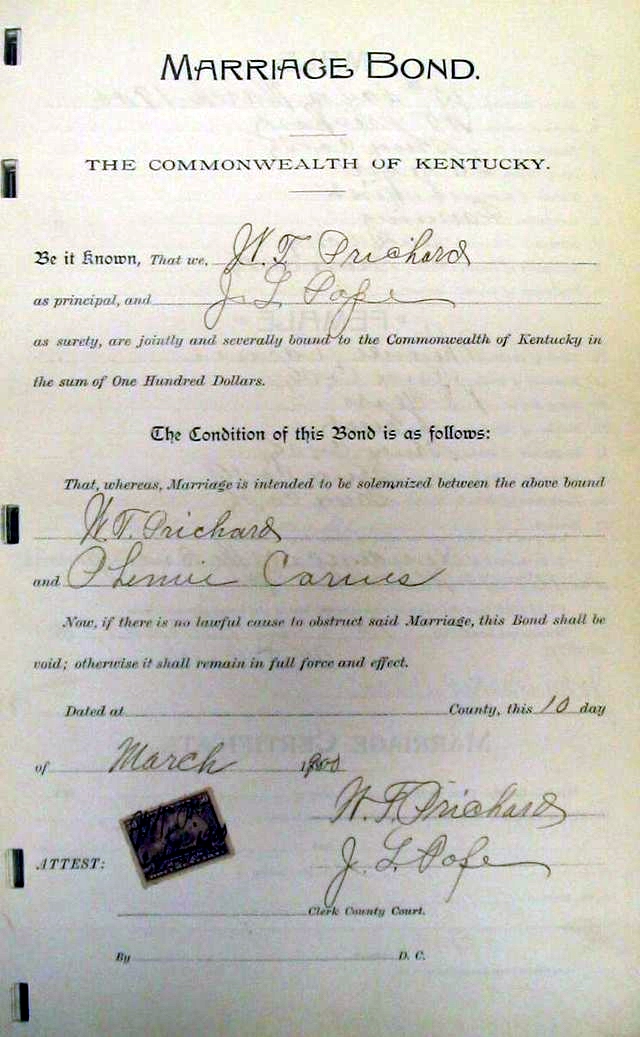 MARRIAGE BOND.
THE COMMONWEALTH OF KENTUCKY.
Be it Known, That we, W. T. Prichard
as principal, and J. L. Pope
as surety, are jointly and severally bound to the Commonwealth of Kentucky in
the sum of One Hundred Dollars.
The Condition of this Bond is as follows:
That, whereas, Marriage is intended to be solemnized between the above bound
W. T. Prichard
and Phemie Carnes
Now, if there is no lawful cause to obstruct said Marriage, this Bond shall be
void; otherwise it shall remain in full force and effect.
Dated at County, this 10 day
of March 1900
W. T. Prichard
ATTEST: J. L. Pope
Clerk County Court.
By D. C.